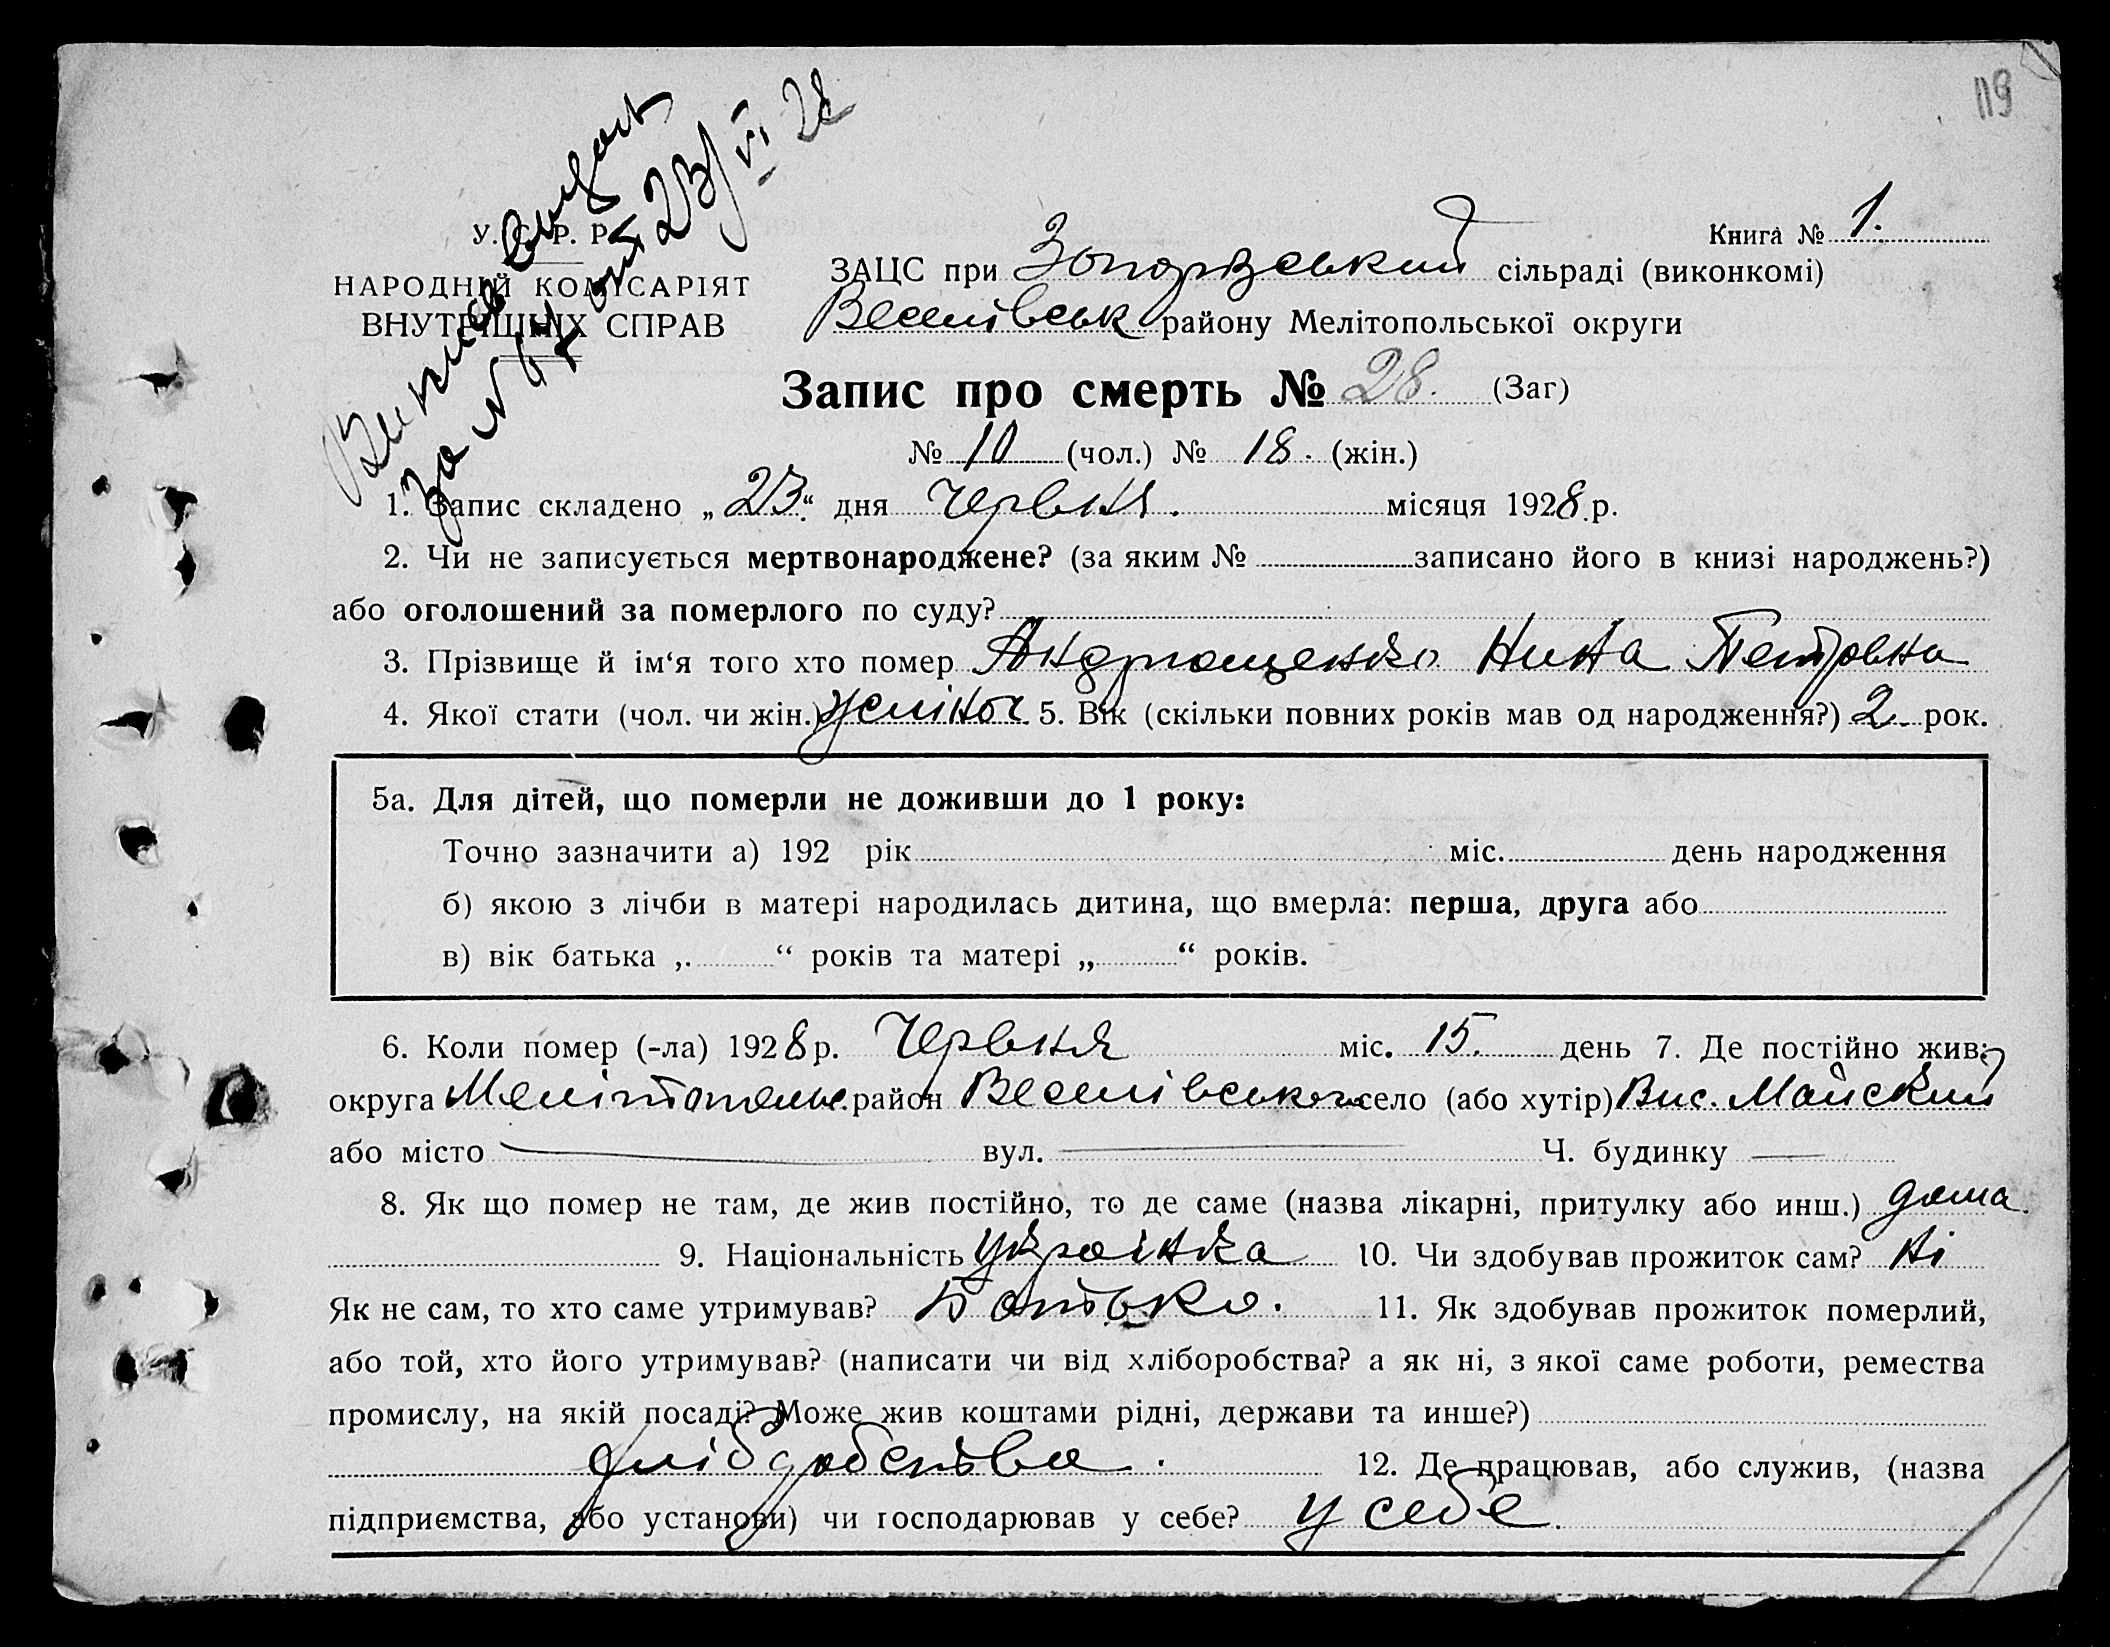 119
Випись видат
за № 47 від 23/VI 28
У. С. Р. Р.
НАРОДНІЙ КОМІСАРІЯТ
ВНУТРІШНІХ СПРАВ
Книга № 1.
ЗАЦС при сільраді (виконкомі)
Веселівськ району Мелітопольської округи
Запис про смерть № 28. (Заг)
№ 10 (чол.) № 18. (жін.)
1. Запис складено „23“ дня Червня. місяця 1928 р.
2. Чи не записується мертвонароджене? (за яким № записано його в книзі народжень?)
або оголошений за померлого по суду?
3. Прізвище й ім‘я того хто помер Андрющенко Нина Петровна
4. Якої стати (чол. чи жін.) жіноч 5. Вік (скільки повних років мав од народження?) 2 рок.
5а. Для дітей, що померли не доживши до 1 року:
Точно зазначити а) 192 рік міс. день народження
б) якою з лічби в матері народилась дитина, що вмерла: перша, друга або
в) вік батька „ “ років та матері „ “ років.
6. Коли помер (-ла) 1928 р. Червня міс. 15. день 7. Де постійно жив:
округа Мелітопольс. район Веселівського село (або хутір) Вис. Майский
або місто — вул. — Ч. будинку —
8. Як що помер не там, де жив постійно, то де саме (назва лікарні, притулку або инш.) дома
9. Національність українка 10. Чи здобував прожиток сам? ні
Як не сам, то хто саме утримував? Батько. 11. Як здобував прожиток померлий,
або той, хто його утримував? (написати чи від хліборобства? а як ні, з якої саме роботи, ремества
промислу, на якій посаді? Може жив коштами рідні, держави та инше?)
12. Де працював, або служив, (назва
підприємства, або установи) чи господарював у себе? у себе